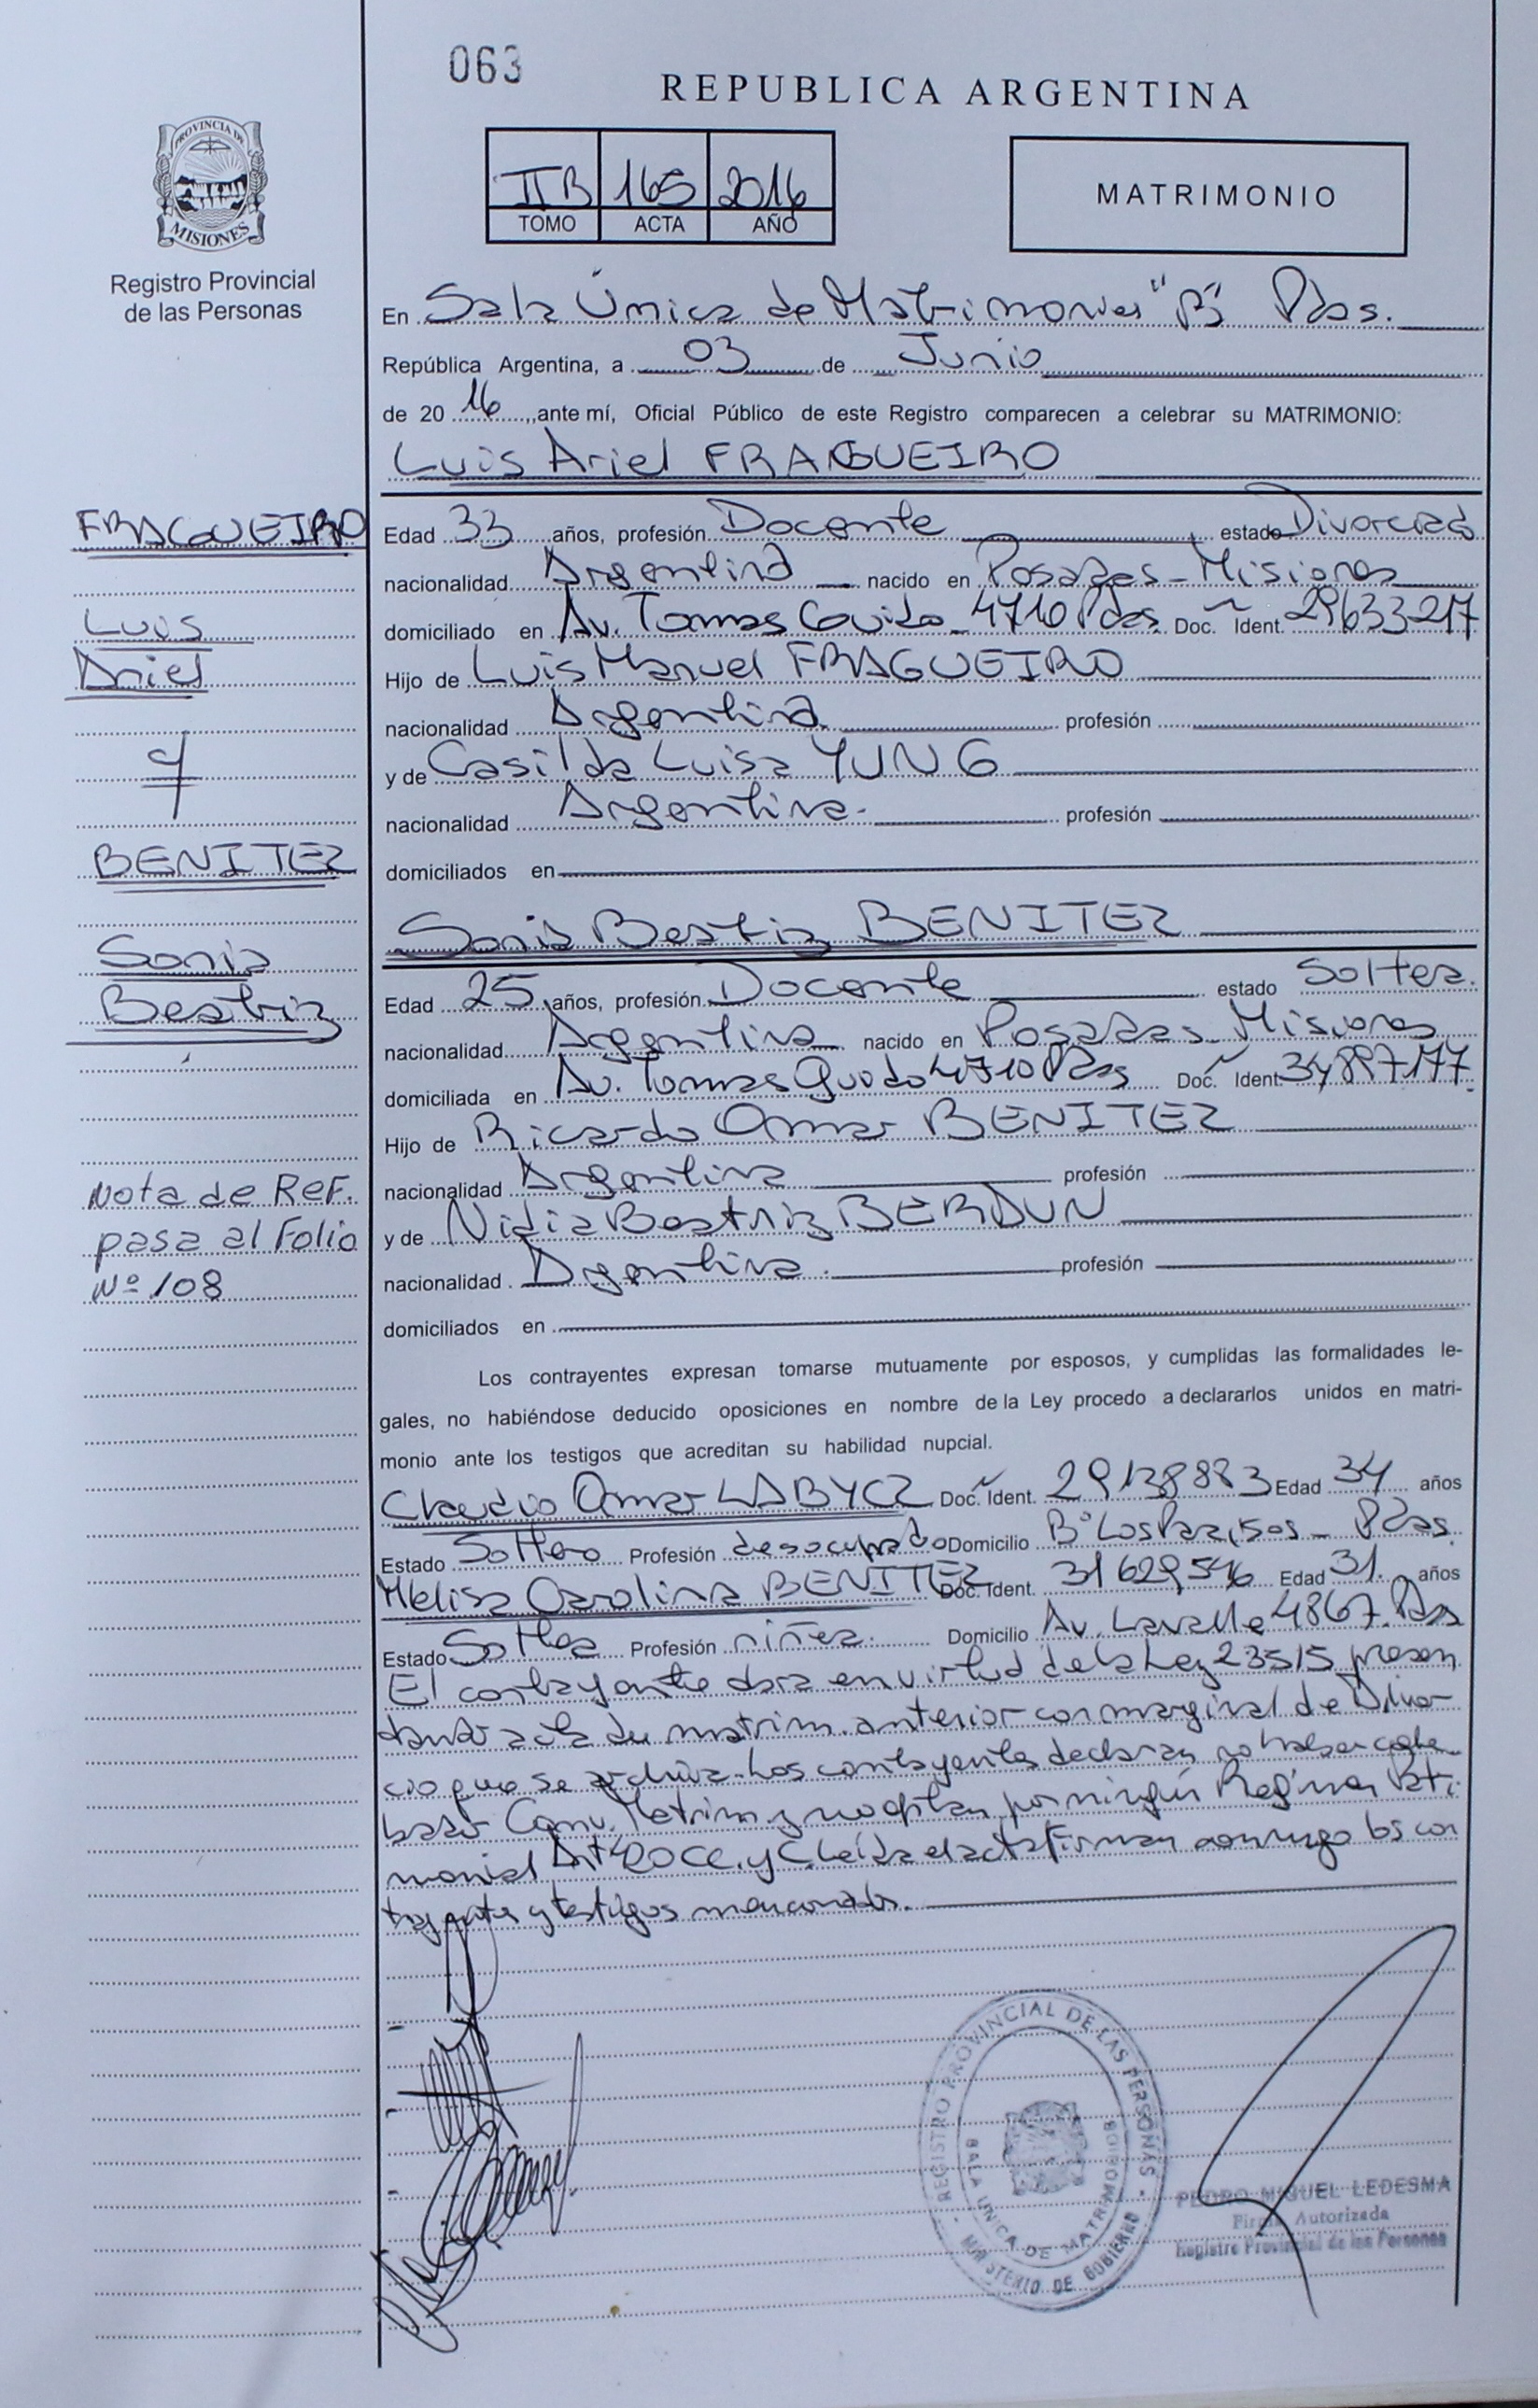 063
REPUBLICA ARGENTINA
PROVINCIA DE
MISIONES
Registro Provincial
de las Personas
II B 165 2016
TOMO ACTA AÑO
MATRIMONIO
En Sala Única de Matrimonios "B" Pdas.
República Argentina, a 03 de Junio
de 20 16, ante mí, Oficial Público de este Registro comparecen a celebrar su MATRIMONIO:
Luis Ariel FRAGUEIRO
FRAGUEIRO
Luis
Ariel
c/
BENITEZ
Sonia
Beatriz
Nota de Ref.
pasa al Folio
Nº 108
Edad 33 años, profesión Docente estado Divorciado
nacionalidad Argentina nacido en Posadas - Misiones
domiciliado en Av. Tomas Guido 4710 Pdas. Doc. Ident. 29633217
Hijo de Luis Manuel FRAGUEIRO
nacionalidad Argentina profesión
y de Casilda Luisa YUNG
nacionalidad Argentina. profesión
domiciliados en
Sonia Beatriz BENITEZ
Edad 25 años, profesión Docente estado Soltera.
nacionalidad Argentina nacido en Posadas - Misiones
domiciliada en Av. Tomas Guido 4710 Pdas Doc. Ident. 34897177
Hijo de Ricardo Omar BENITEZ
nacionalidad Argentina profesión
y de Nidia Beatriz BERDUN
nacionalidad Argentina. profesión
domiciliados en
Los contrayentes expresan tomarse mutuamente por esposos, y cumplidas las formalidades le-
gales, no habiéndose deducido oposiciones en nombre de la Ley procedo a declararlos unidos en matri-
monio ante los testigos que acreditan su habilidad nupcial.
Claudio Omar LABYCZ Doc. Ident. 29138883 Edad 34 años
Estado Soltero Profesión desocupado Domicilio Bº Los Paraisos - Pdas.
Melisa Carolina BENITEZ Doc. Ident. 31629546 Edad 31. años
Estado Soltera Profesión niñera. Domicilio Av. Lavalle 4867. Pdas
El contrayente en virtud de la Ley 23515 presen
tando acta de matrim. anterior con marginal de Divor
cio que se archiva. Los contrayentes declaran no haber cele
brado Conv. Matrim. y no optan por ningún Regimen Patri
monial Art 420 CC. y C. Leída el acta firman conmigo los con
trayentes y testigos mencionados.
REGISTRO PROVINCIAL DE LAS PERSONAS
SALA UNICA DE MATRIMONIOS
MINISTERIO DE GOBIERNO
PEDRO MIGUEL LEDESMA
Firma Autorizada
Registro Provincial de las Personas